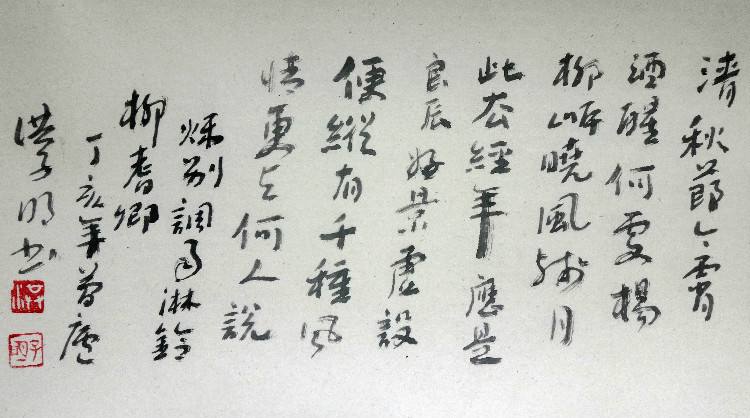 清秋節今宵
酒醒何處楊
柳岸曉風殘月
此去經年應是
良辰好景虛設
便縱有千種風
情更與何人說
調雨淋鈴
柳耆卿
丁亥年
洪子明书